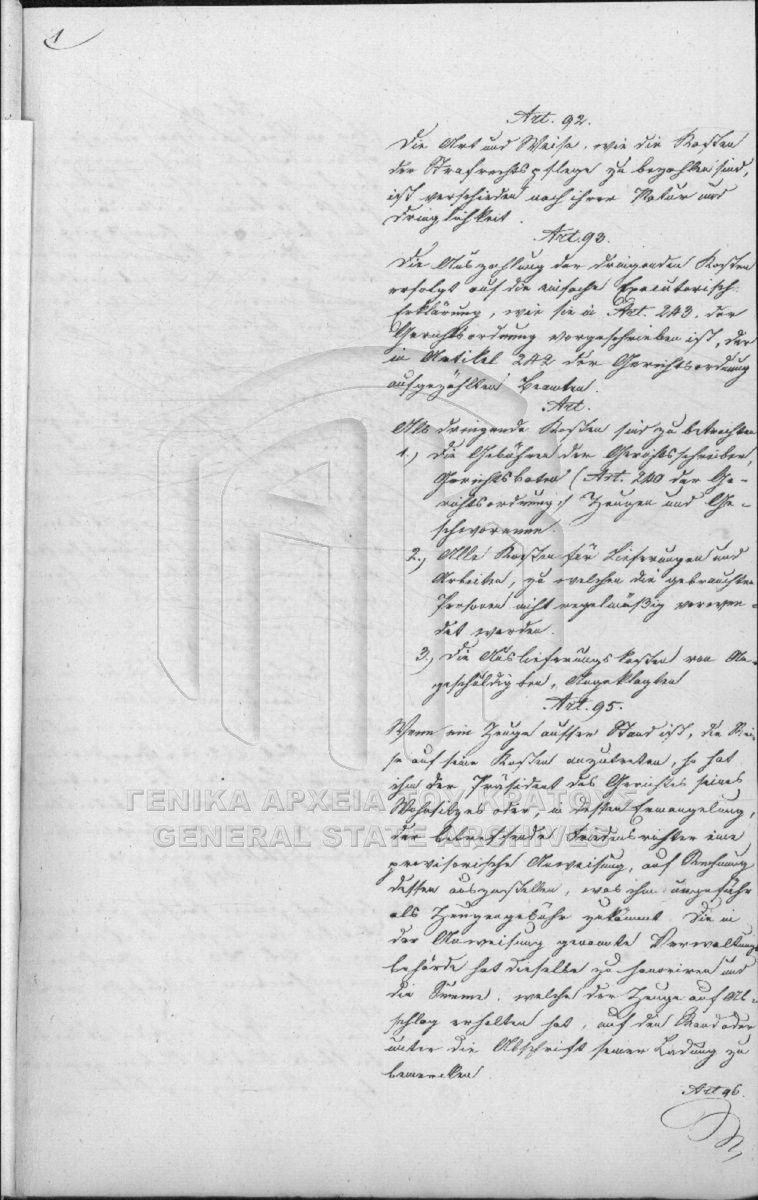 1
Art. 92.
Die Art und Weise, wie die Kosten
der Strafrechtspflege zu bezahlen sind,
ist verschieden nach ihrer Natur und
Dringlichkeit.
Art. 93.
Die Auszahlung der dringenden Kosten
erfolgt auf die einfache Executorisch-
Erklärung, wie sie in Art. 243. der
Gerichtsordnung vorgeschrieben ist, der
in Artikel 242 der Gerichtsordnung
aufgezählten Beamten.
Art.
Als dringende Kosten sind zu betrachten
1.) die Gebühren der Gerichtsschreiber,
Gerichtsboten (Art. 240 der Ge-
richtsordnung) Zeugen und Ge-
schwornen.
2.) Alle Kosten für Lieferungen und
Arbeiten, zu welchen die gebrauchten
Personen nicht regelmäßig verwen-
det werden.
3.) die Auslieferungskosten von An-
geschuldigten, Angeklagten
Art. 95.
Wenn ein Zeuge ausser Stand ist, die Rei-
se auf seine Kosten anzutreten, so hat
ihm der Präsident des Gerichtes seines
Wohnsitzes oder, in dessen Ermangelung,
der betreffende Friedensrichter eine
provisorische Anweisung, auf Rechnung
dessen auszustellen, was ihm ungefähr
als Zeugengebühr zukömmt. Die in
der Anweisung genannte Verwaltungs
behörde hat dieselbe zu honoriren und
die Summe, welche der Zeuge auf Ab-
schlag erhalten hat, auf den Rand oder
unter die Abschrift seiner Ladung zu
bemerken
Art 96.
ΓΕΝΙΚΑ ΑΡΧΕΙΑ ΤΟΥ ΚΡΑΤΟΥΣ
GENERAL STATE ARCHIVES